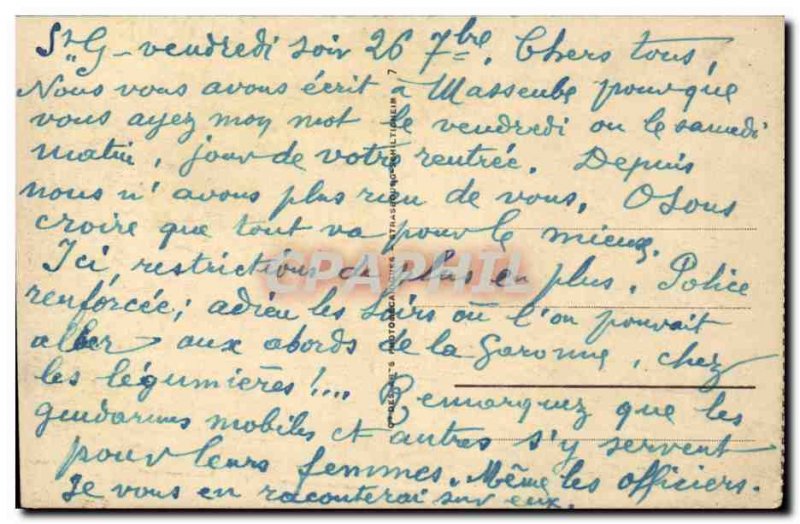 St G – vendredi soir 26 7bre. Chers tous,
Nous vous avons écrit à Masseube pour que
vous ayez moy mot le vendredi ou le samedi
matin, jour de votre rentrée. Depuis
nous n'avons plus rien de vous. Osons
croire que tout va pour le mieux.
Ici, restrictions de plus en plus. Police
renforcée ; adieu les soirs où l'on pouvait
aller aux abords de la Garonne, chez
les légumières !....  Remarquez que les
gendarmes mobiles et autres s'y servent
pour leurs femmes. Même les officiers.
Je vous en raconterai sur eux.
CPARPHIL
PHOTOMÉCANIQUES STRASBOURG-SCHILTIGHEIM 7